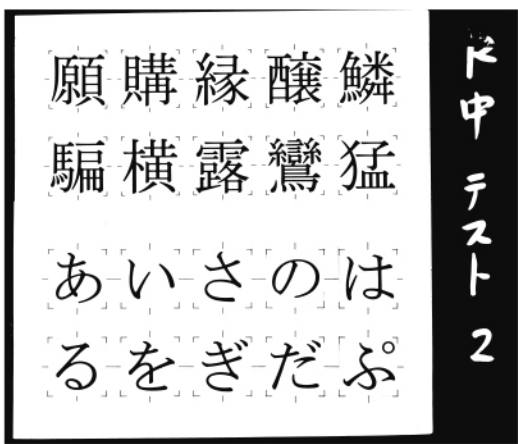 願購縁醸鱗
騙横露鸞猛
あいさのは
るをぎだぷ
ド中 テスト 2